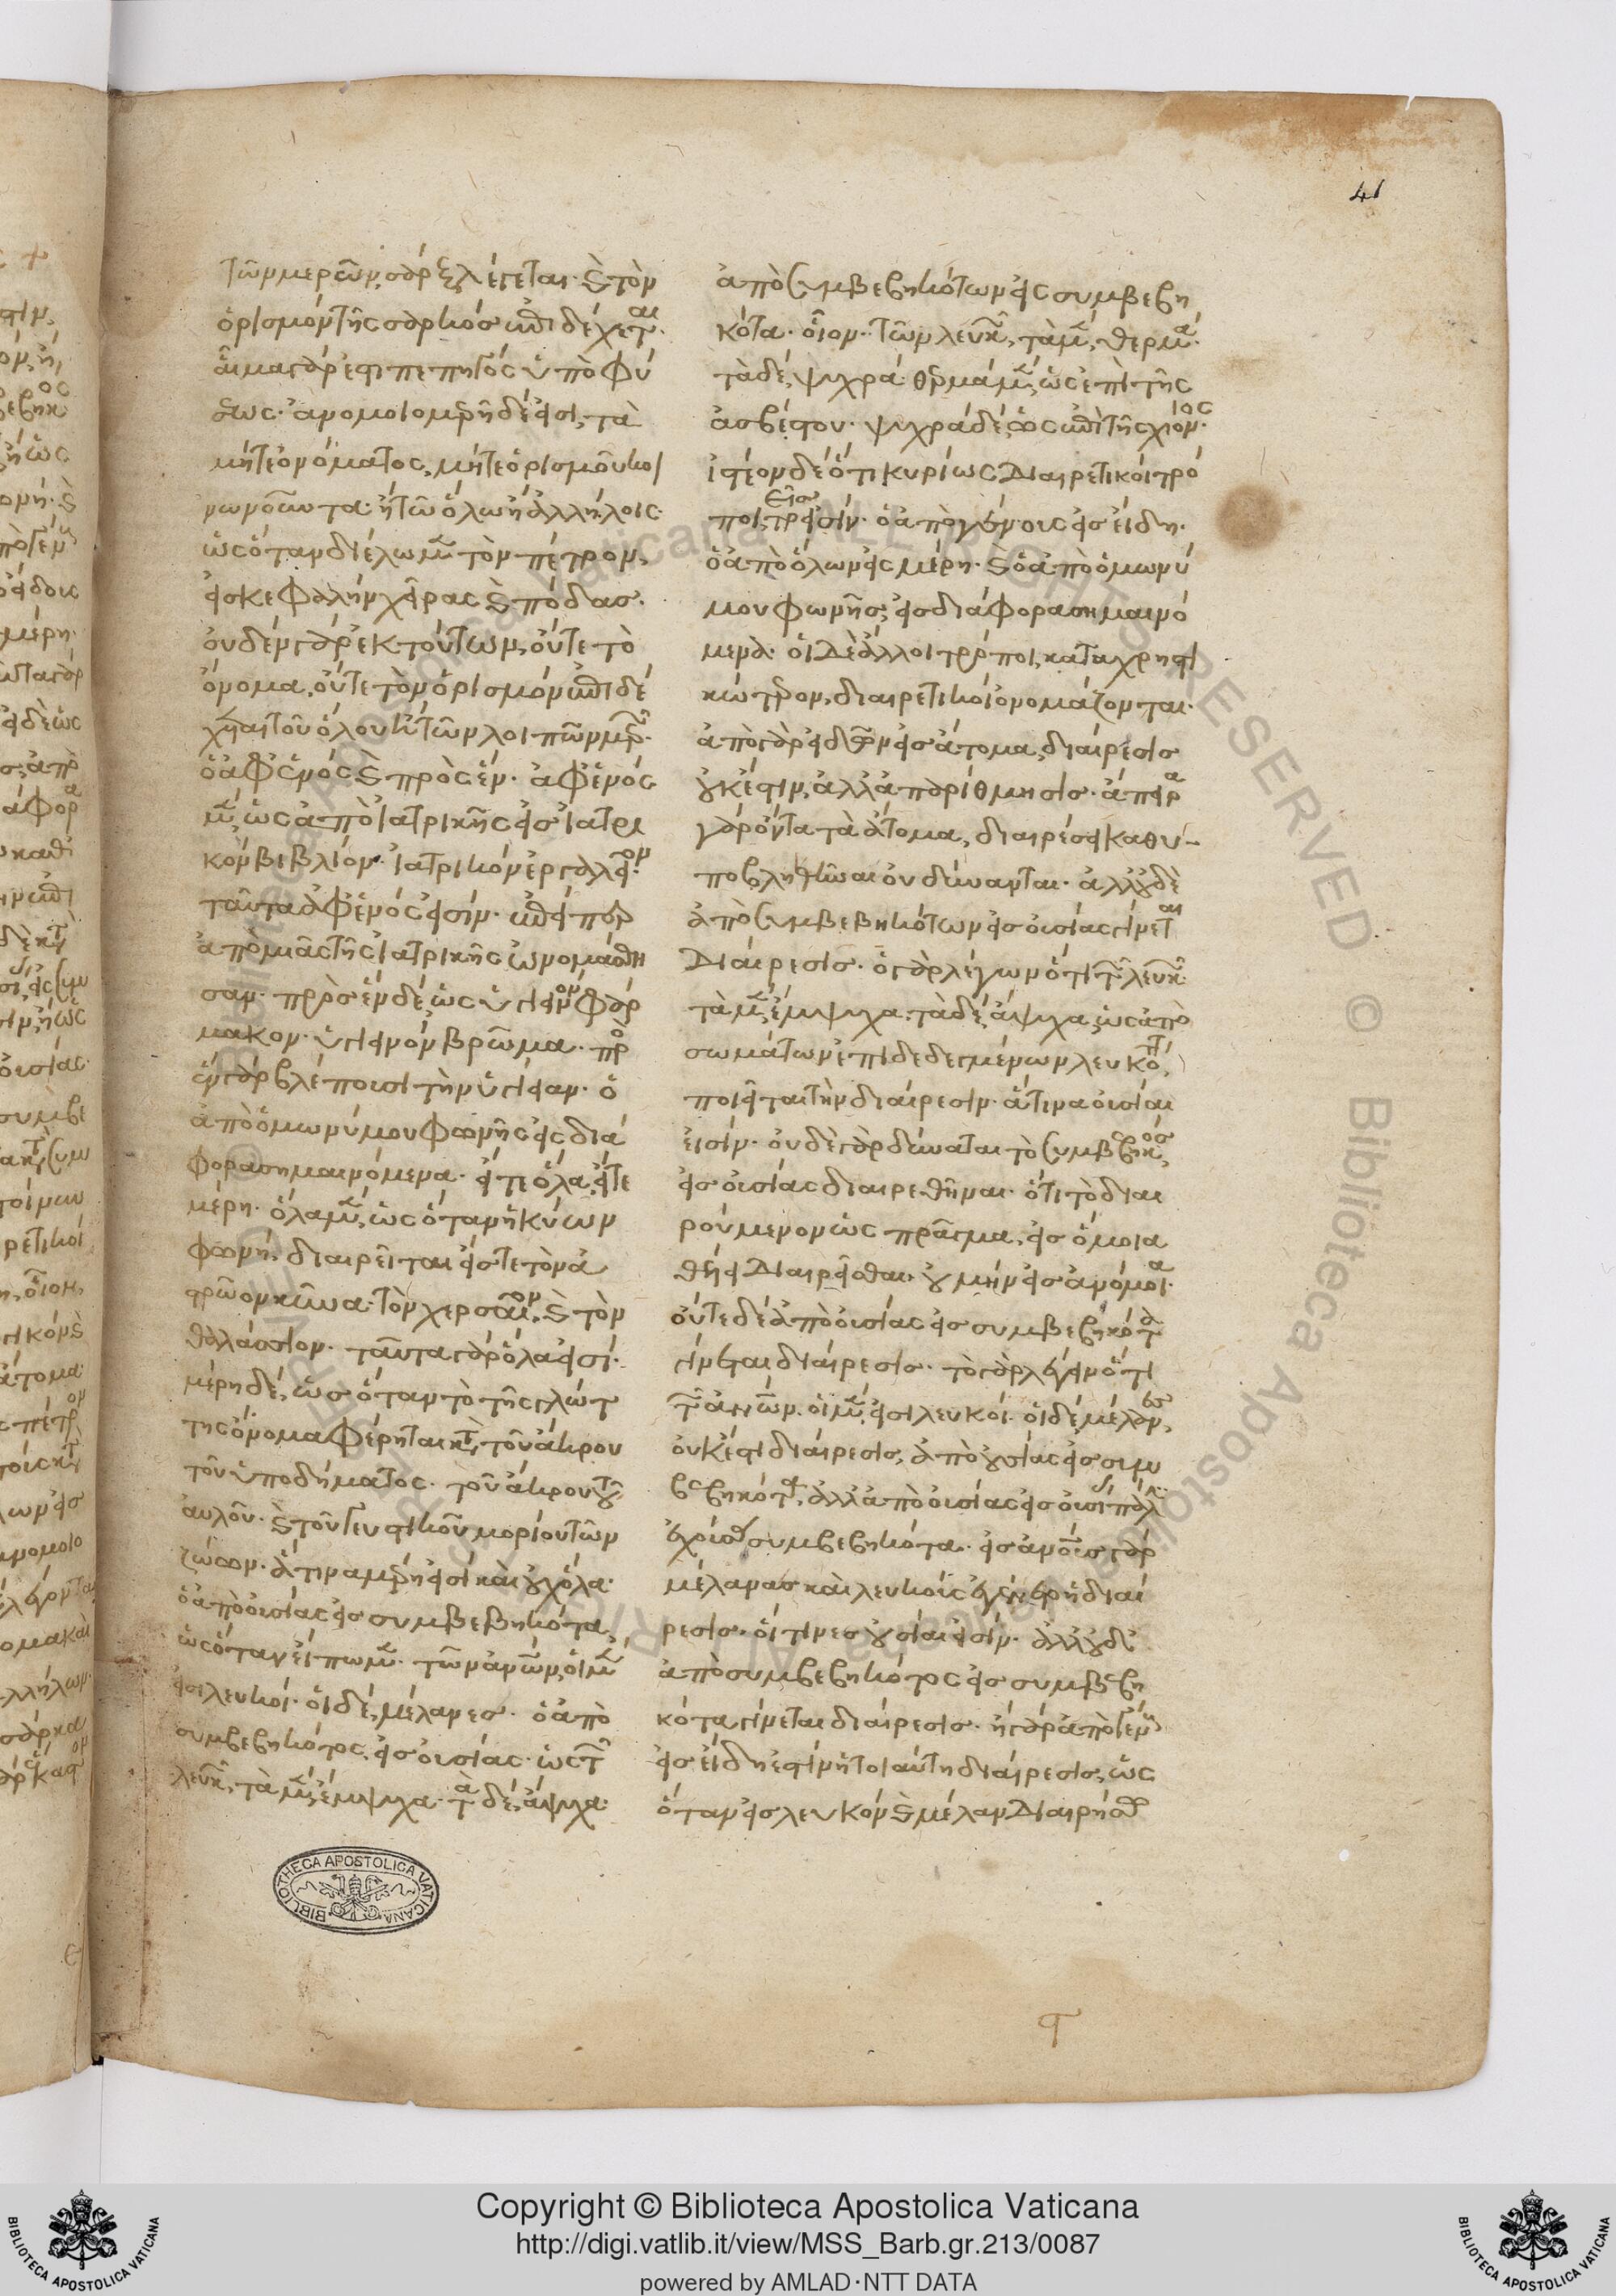 41
τῶν μερῶν, σὰρξ λέγεται· καὶ τὸν
ὁρισμὸν τῆς σαρκὸς ἐπιδέχεται·
αἷμα γάρ ἐστι πεπηγὸς ὑπὸ φύ
σεως· ἀνομοιομερῆ δέ εἰσι, τὰ
μήτε ὀνόματος, μήτε ὁρισμοῦ κοι
νωνοῦντα· ἢ τῶ ὅλω ἢ ἀλλήλοις·
ὡς ὅταν διέλωμεν τὸν πέτρον,
εἰς κεφαλὴν χεῖρας καὶ πόδας·
οὐδὲν γὰρ ἐκ τούτων, οὔτε τὸ
ὄνομα, οὔτε τὸν ὁρισμὸν ἐπιδέ
χεται τοῦ ὅλου ἢ τῶν λοιπῶν μερῶν·
ὁ ἀφ' ἑνὸς καὶ πρὸς ἕν· ἀφ' ἑνὸς
μὲν, ὡς ἀπὸ ἰατρικῆς εἰς ἰατρι
κὸν βιβλίον· ἰατρικὸν ἐργαλεῖον·
ταῦτα ἀφ' ἑνός εἰσιν· ἐπείπερ
ἀπὸ μιᾶς τῆς ἰατρικῆς ὠνομάσθη
σαν· πρὸς ἓν δέ, ὡς ὑγιεινὸν φάρ
μακον· ὑγιεινὸν βρῶμα· πρὸς
ἓν γὰρ βλέπουσι τὴν ὑγίειαν· ὁ
ἀπὸ ὁμωνύμου φωνῆς εἰς διά
φορα σημαινόμενα· εἴτε ὅλα, εἴτε
μέρη· ὅλα μὲν, ὡς ὅταν ἡ κύων
φωνή, διαιρεῖται εἴς τε τὸν ἀ
στρῶον κύνα· τὸν χερσαῖον, καὶ τὸν
θαλάσσιον· ταῦτα γὰρ ὅλα εἰσί·
μέρη δέ, ὡς ὅταν τὸ τῆς γλώτ
της ὄνομα φέρηται κατὰ τοῦ ἄκρου
τοῦ ὑποδήματος· τοῦ ἄκρου τοῦ
αὐλοῦ· καὶ τοῦ γευστικοῦ μορίου τῶν
ζώων· ἅτινα μέρη εἰσὶ καὶ οὐχ ὅλα·
ὁ ἀπὸ οὐσίας εἰς συμβεβηκότα,
ὡς ὅταν εἴπωμεν· τῶν ἀνθρώπων, οἱ μέν
εἰσι λευκοί· οἱ δὲ, μέλανες· ὁ ἀπὸ
συμβεβηκότος, εἰς οὐσίας· ὡς τῶν
λευκῶν, τὰ μὲν, ἔμψυχα· τὰ δὲ, ἄψυχα·
ἀπὸ συμβεβηκότων εἰς συμβεβη
κότα· οἷον· τῶν λευκῶν, τὰ μὲν, θερμά·
τὰ δὲ, ψυχρά· θερμὰ μὲν, ὡς ἐπὶ τῆς
ἀσβέστου· ψυχρὰ δέ, ὡς ἐπὶ τῆς χιόνος·
ἰστέον δὲ ὅτι κυρίως διαιρετικοὶ τρό
ποι, τρεῖς εἰσίν· ὁ ἀπὸ γένους εἰς εἴδη·
ὁ ἀπὸ ὅλων εἰς μέρη· καὶ ὁ ἀπὸ ὁμωνύ
μου φωνῆς, εἰς διάφορα σημαινό
μενα· οἱ δὲ ἄλλοι τρόποι, καταχρηστι
κώτερον, διαιρετικοὶ ὀνομάζονται·
ἀπὸ γὰρ εἰδῶν εἰς ἄτομα, διαίρεσις
οὐκ ἔστιν, ἀλλ' ἀπαρίθμησις· ἄπειρα
γὰρ ὄντα τὰ ἄτομα, διαιρέσει καθυ-
ποβληθῆναι οὐ δύνανται· ἀλλ' οὐδὲ
ἀπὸ συμβεβηκότων εἰς οὐσίας γίνεται
διαίρεσις· ὁ γὰρ λέγων ὅτι τῶν λευκῶν
τὰ μὲν, ἔμψυχα· τὰ δὲ, ἄψυχα, ὡς ἀπὸ
σωμάτων ἐπιδεδεγμένων λευκότητα,
ποιεῖται τὴν διαίρεσιν· ἅτινα οὐσίαι
εἰσίν· οὐδὲ γὰρ δύναται τὸ συμβεβηκὸς,
εἰς οὐσίας διαιρεθῆναι· ὅτι τὸ διαι
ρούμενον ὡς πρᾶγμα, εἰς ὅμοια
θέλει διαιρεῖσθαι· οὐ μὴν εἰς ἀνόμοια·
οὔτε δὲ ἀπὸ οὐσίας εἰς συμβεβηκότα
γίνεται διαίρεσις· τὸ γὰρ λέγειν ὅτι
τῶν ἀνθρώπων, οἱ μέν, εἰσι λευκοί· οἱ δὲ, μέλανες,
οὐκ ἔστι διαίρεσις, ἀπὸ οὐσίας εἰς συμ
βεβηκότα, ἀλλ' ἀπὸ οὐσίας εἰς οὐσίαν
συμβεβηκότα· εἰς ἀνθρώπους γὰρ
μέλανας καὶ λευκοὺς ἐγένετο ἡ διαί
ρεσις· οἵτινες οὐσίαι εἰσίν· ἀλλ' οὐδὲ
ἀπὸ συμβεβηκότος εἰς συμβεβη
κότα γίνεται διαίρεσις· ἢ γὰρ ἀπὸ γένους
εἰς εἴδη ἐστὶν ἡ τοιαύτη διαίρεσις, ὡς
ὅταν εἰς λευκὸν καὶ μέλαν διαιρῆται
BIBLIOTHECA APOSTOLICA VATICANA
Copyright © Biblioteca Apostolica Vaticana
http://digi.vatlib.it/view/MSS_Barb.gr.213/0087
powered by AMLAD·NTT DATA